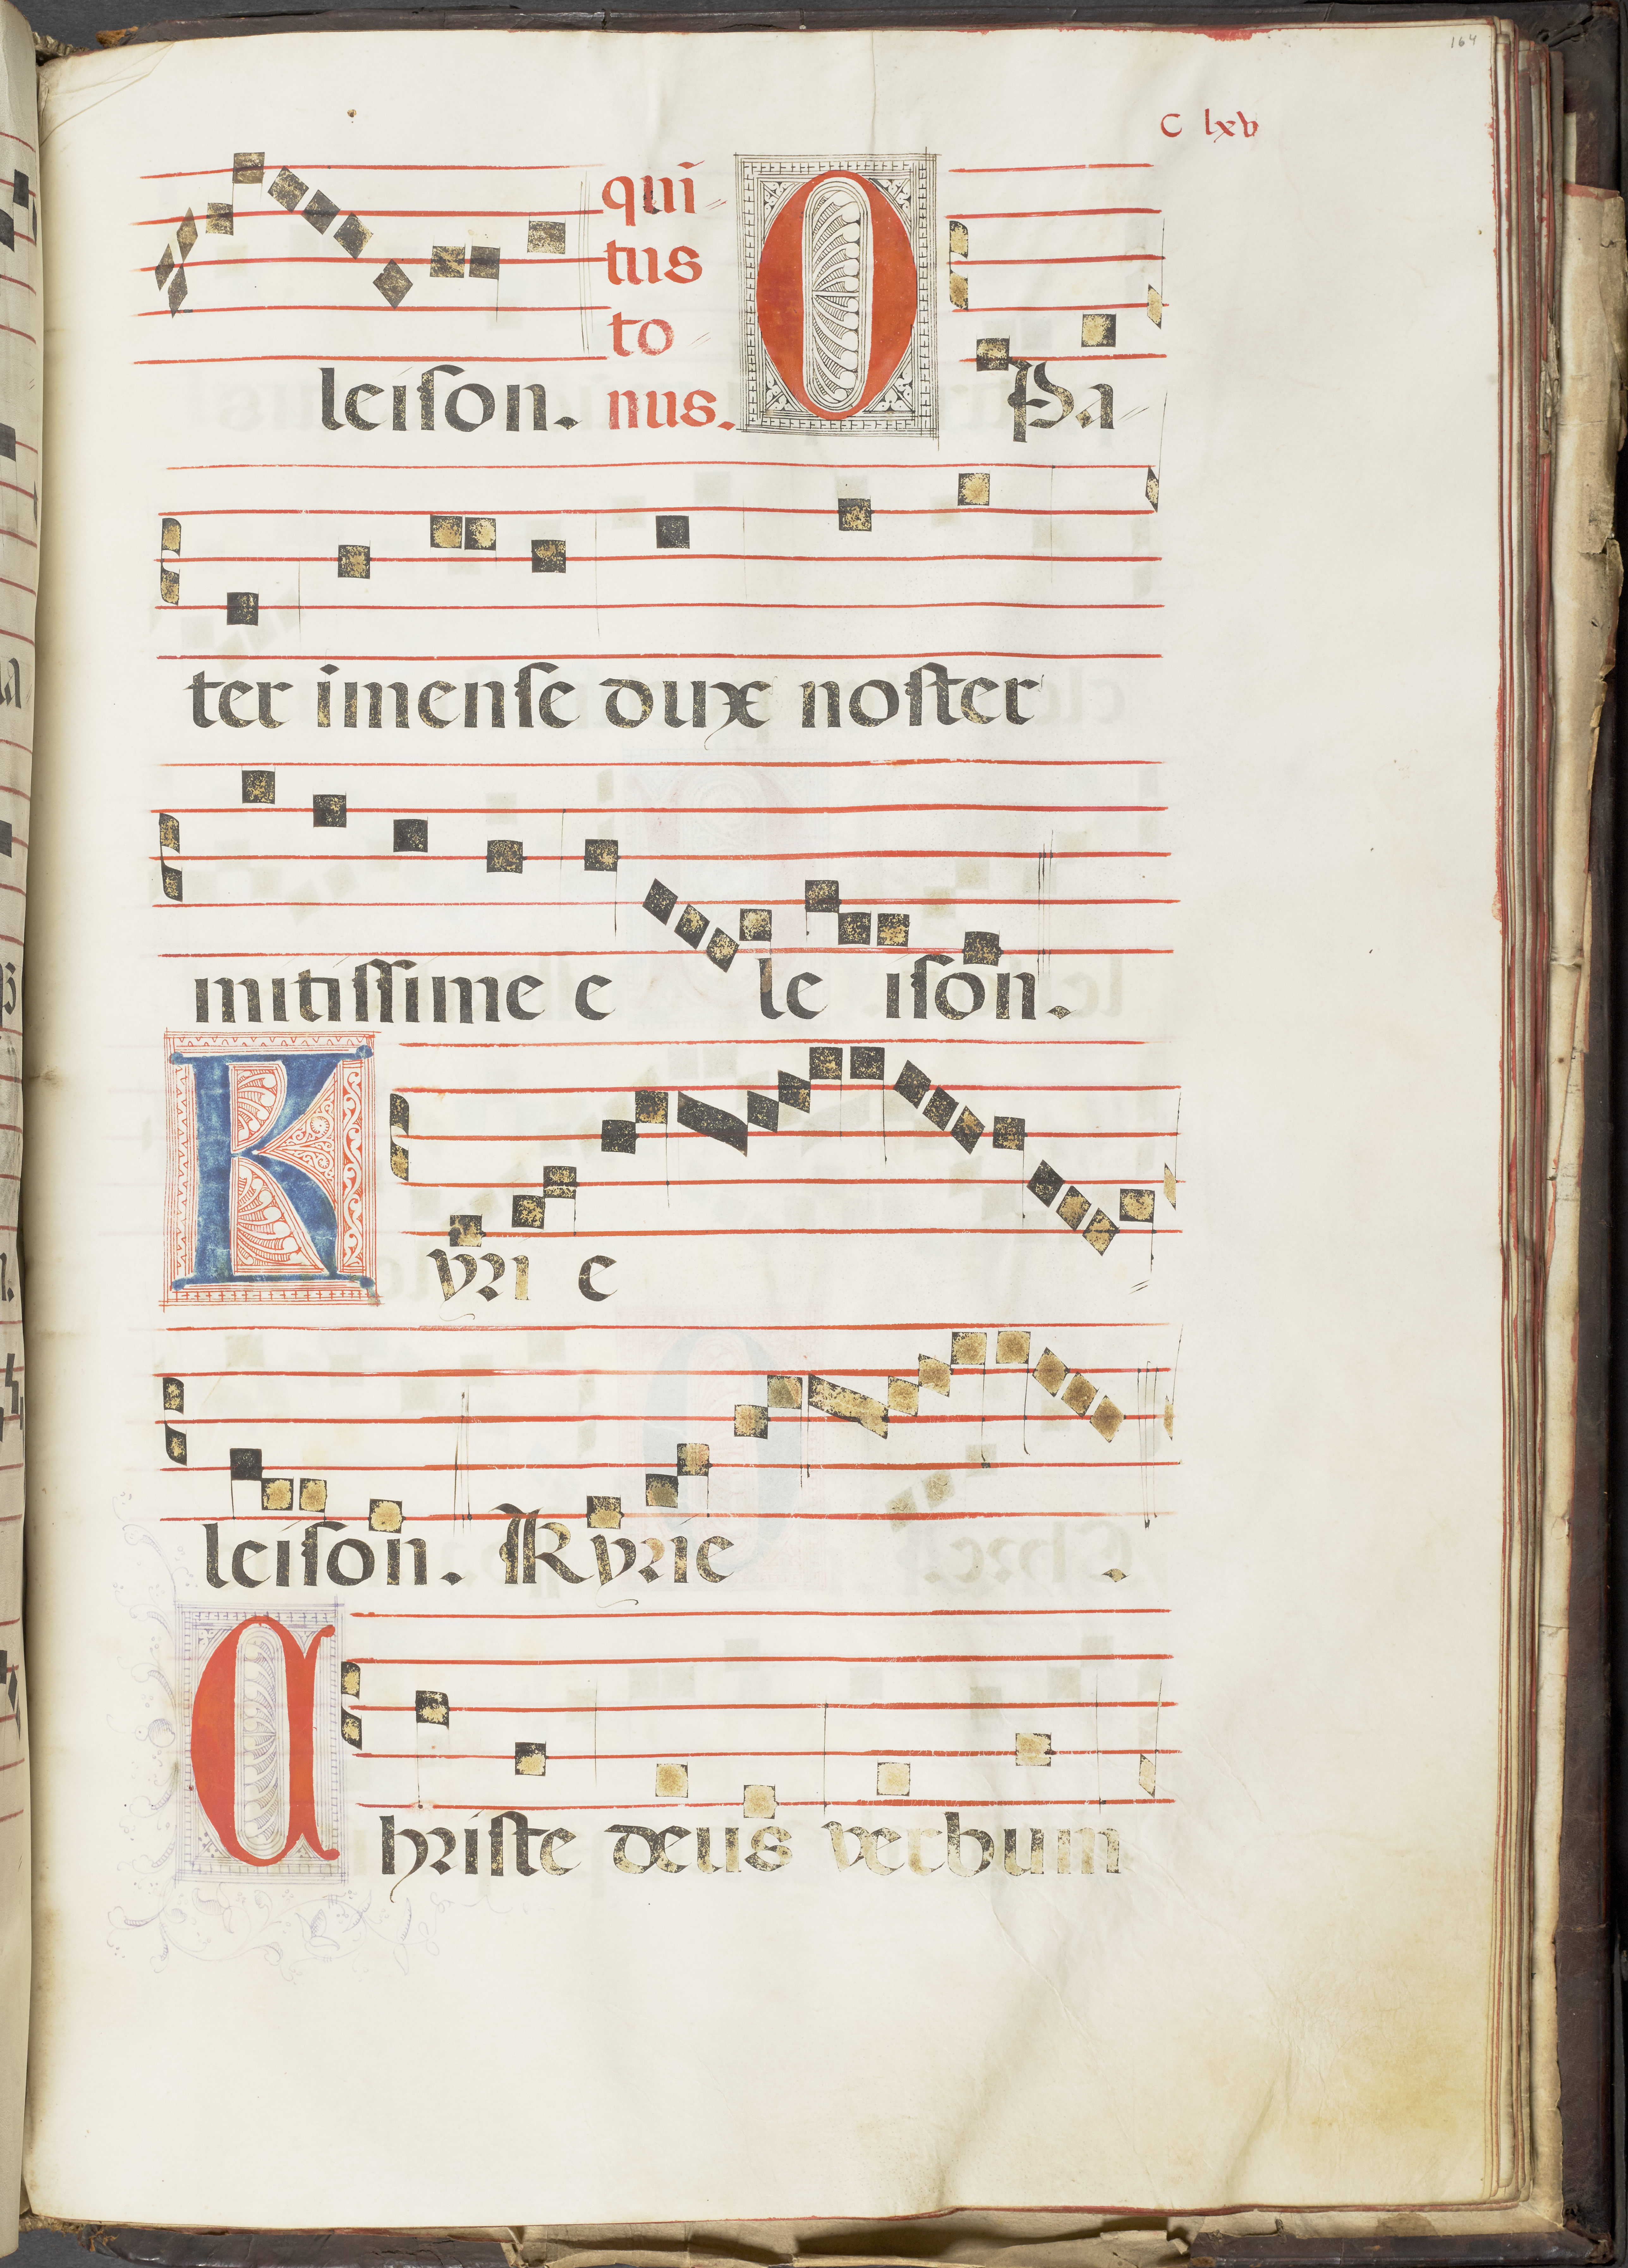 164
C lxv
qui
tus
to
leison. nus. O Pa
ter imense dux noster
mitissime e le ison.
K yri e
leison. Kyrie .
Christe deus verbum